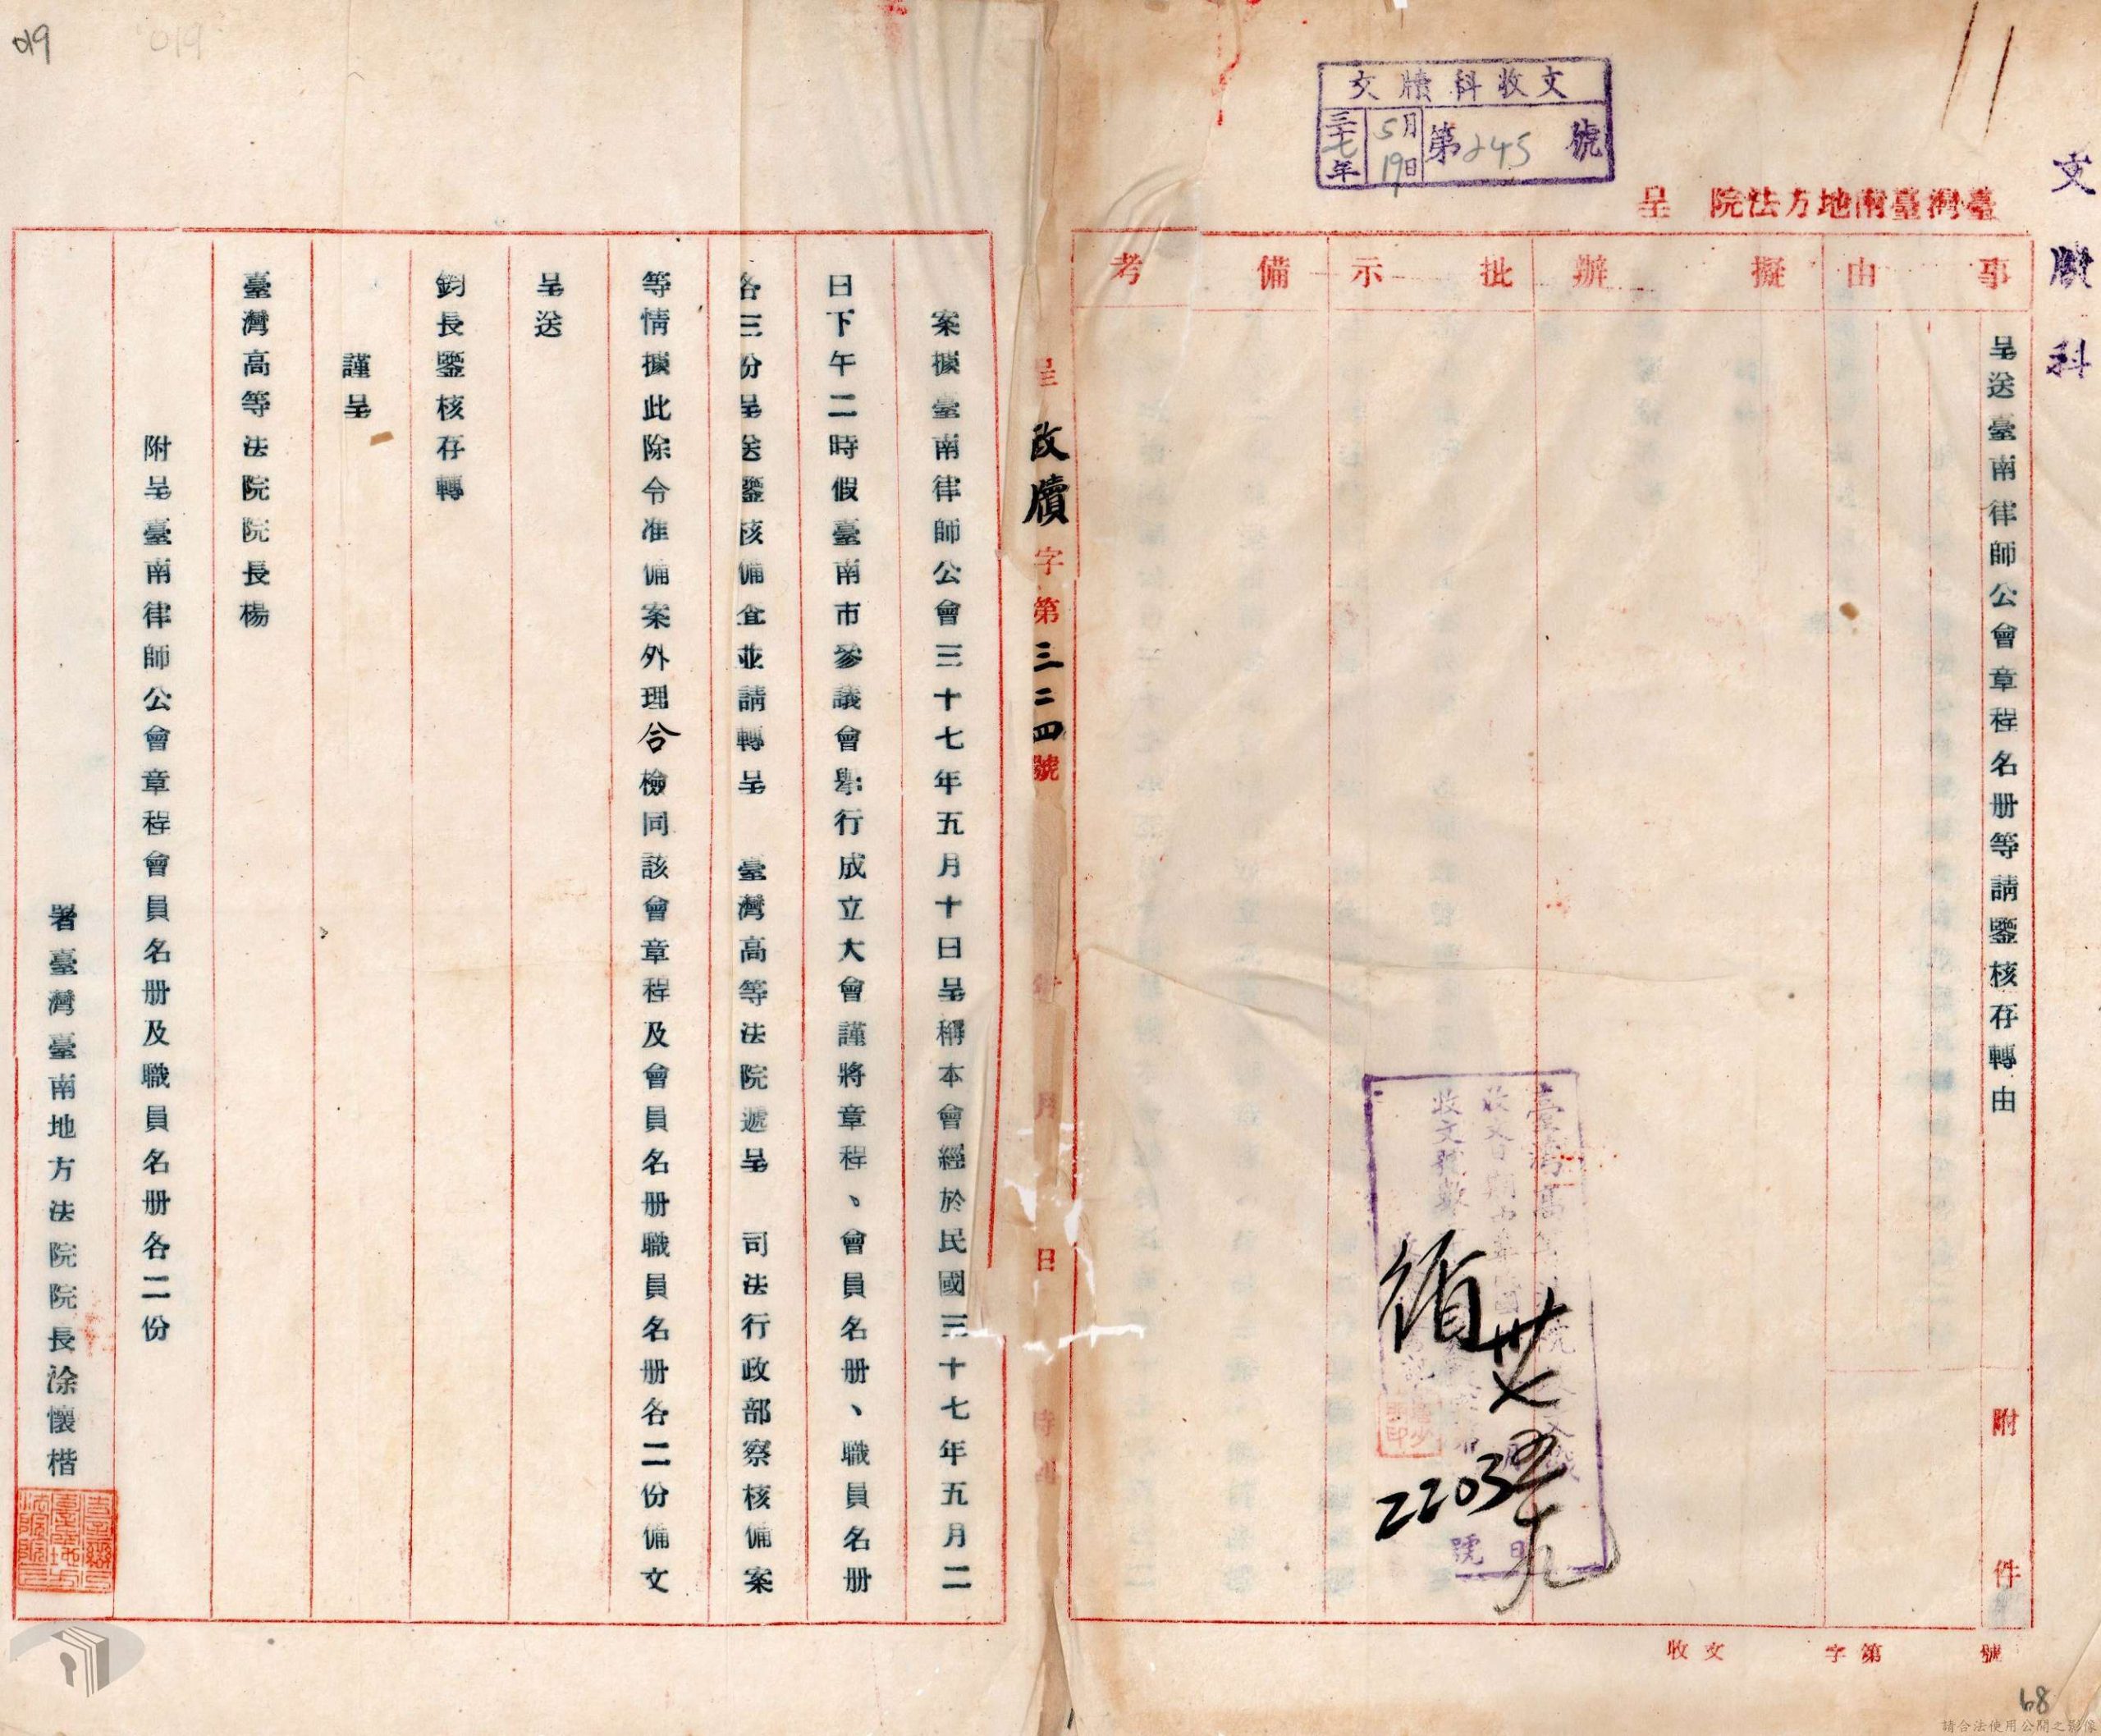 019
文牘科
文牘科收文
三十七年
5月19日
第245號
臺灣臺南地方法院 呈
事由
擬辦
批示
備考
呈送臺南律師公會章程名册等請鑒核存轉由
附件
收文 字第 號
臺灣高等
收文日期
收文號數
卅七
五
十九
22032
日
號
呈 文牘字第三二四號
年 月 日 時
案據臺南律師公會三十七年五月十日呈稱本會經於民國三十七年五月二
日下午二時假臺南市參議會舉行成立大會謹將章程、會員名册、職員名册
各三份呈送鑒核備查並請轉呈 臺灣高等法院遞呈 司法行政部察核備案
等情據此除令准備案外理合檢同該會章程及會員名册職員名册各二份備文
呈送
鈞長鑒核存轉
謹呈
臺灣高等法院院長楊
附呈臺南律師公會章程會員名册及職員名册各二份
署臺灣臺南地方法院院長涂懷楷
68
請合法使用公開之影像